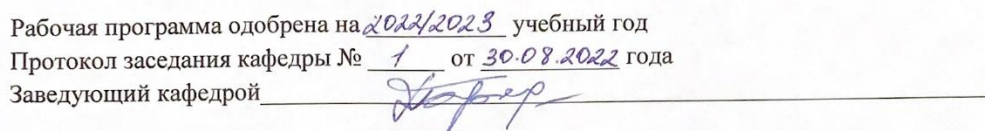 Рабочая программа одобрена на 2022/2023 учебный год
Протокол заседания кафедры № 1 от 30.08.2022 года
Заведующий кафедрой